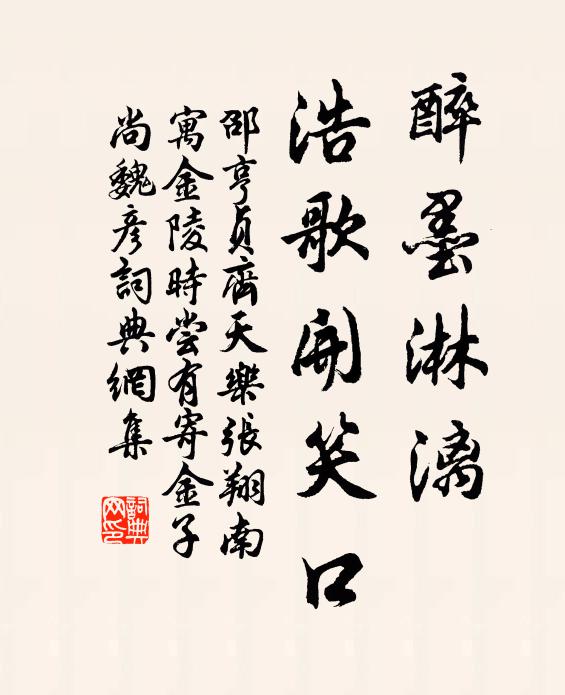 醉墨淋漓
浩歌開笑口
邵亨貞齊天樂張翔南
寓金陵時嘗有寄金子
尚魏彦詞典網集
詞典
网印